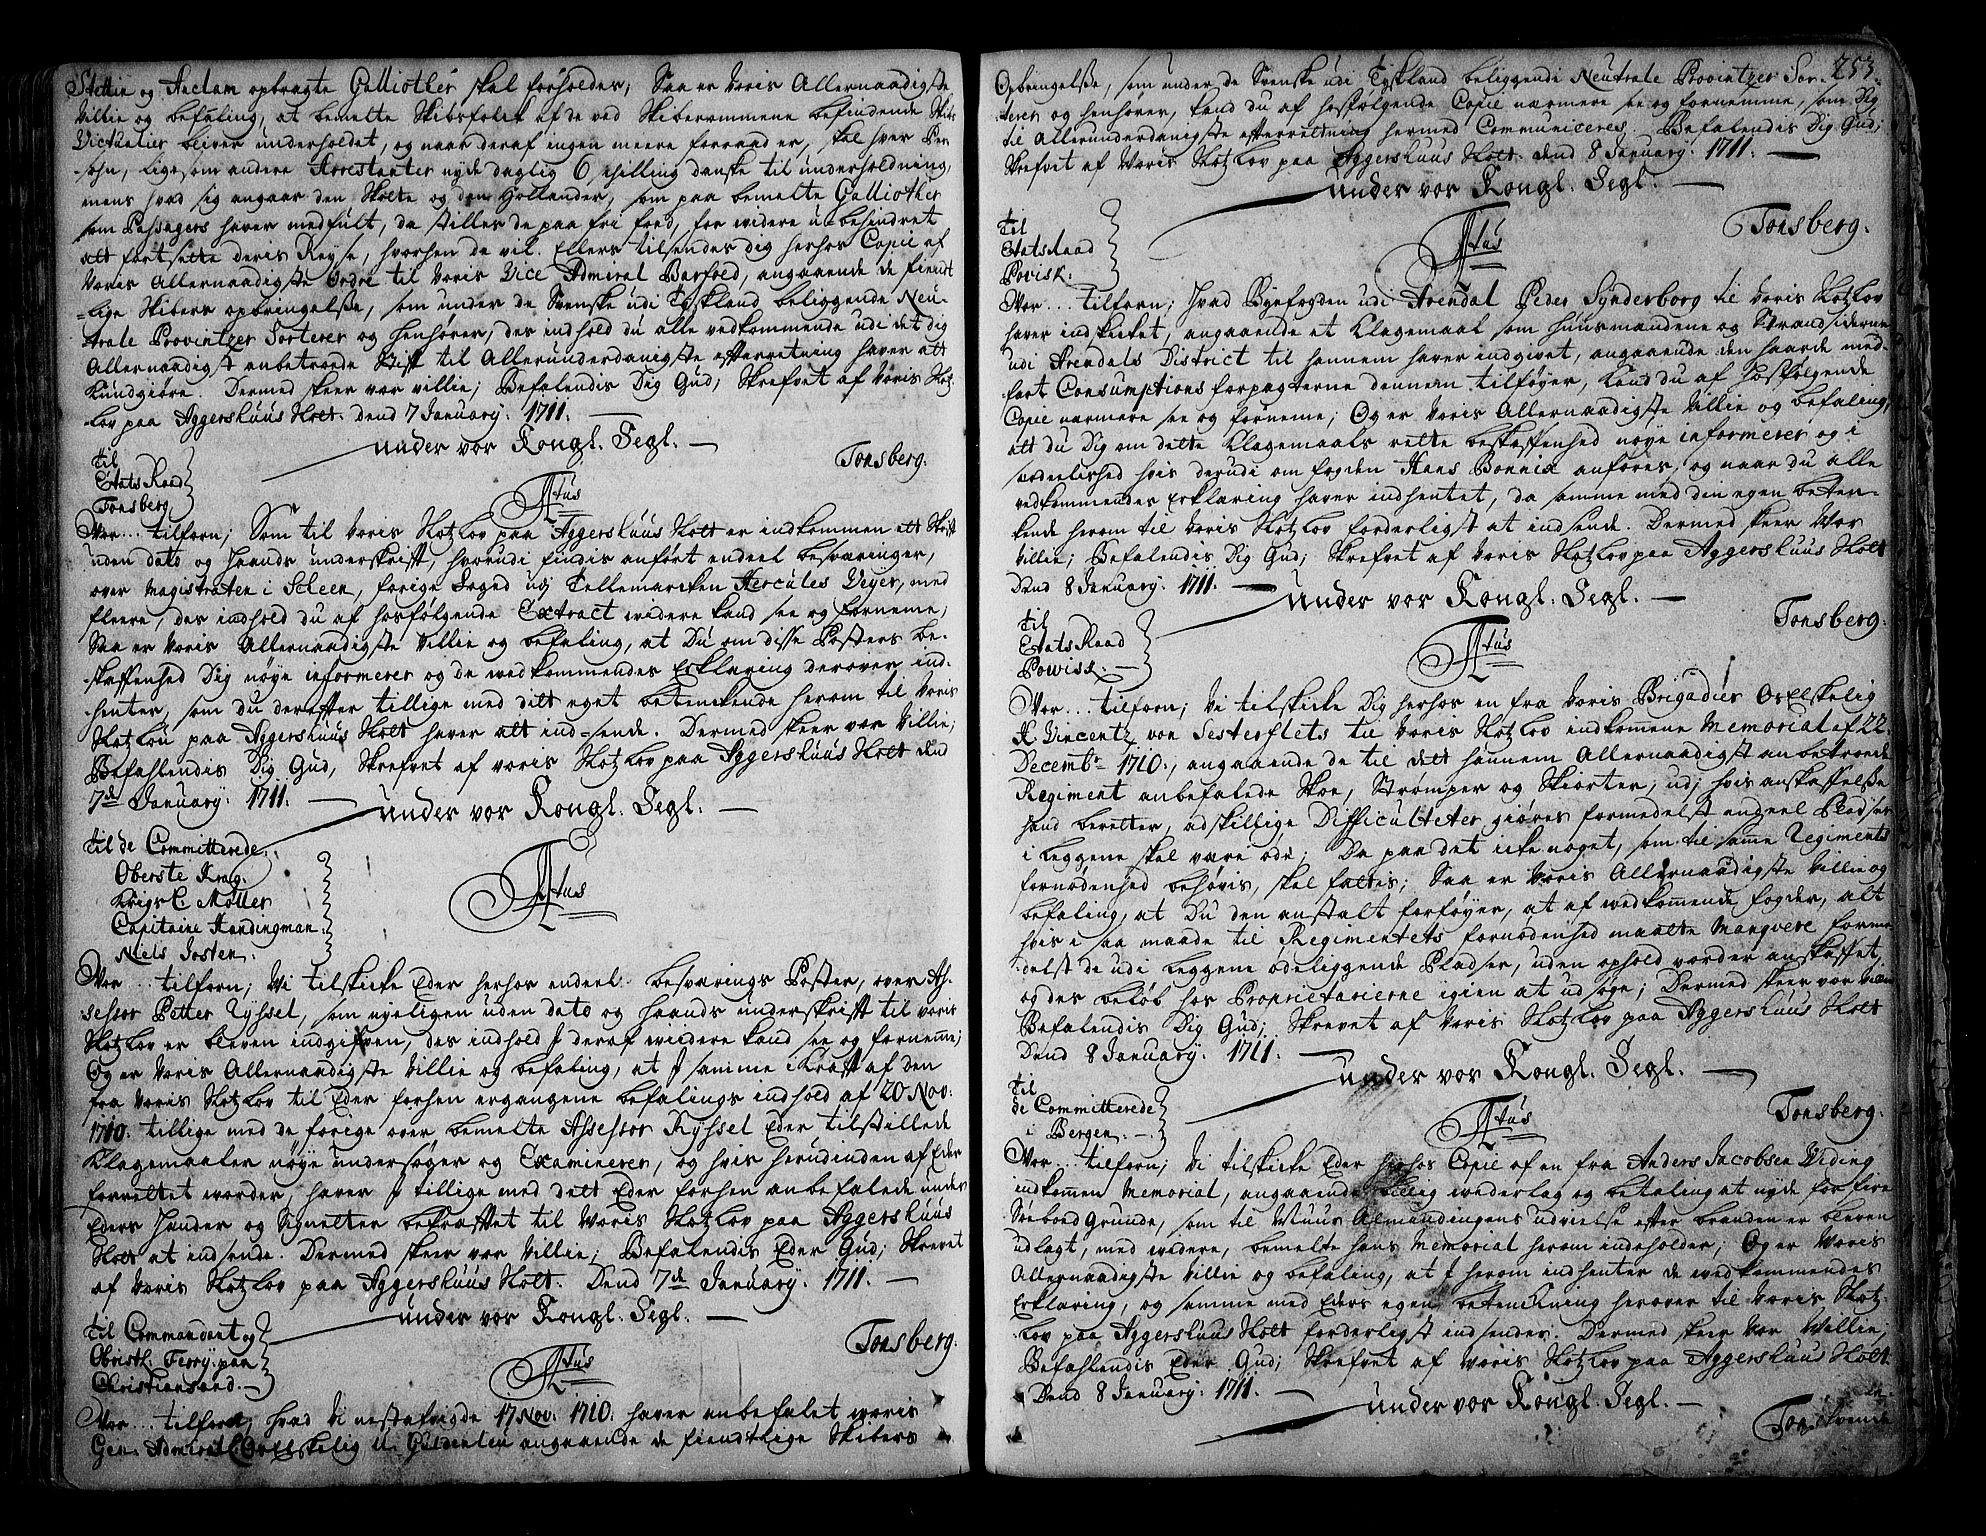 Stettin og Anclam opbragte Galliother skal forholdes, Saa er Voris Allernaadigste
Villie og befaling, at bemelte Skibsfolck af de ved Skiberommene befindende Skibs
Victualier bliver underholdet, og naar deraf ingen meere forraad er, skal hver Per-
sohn, ligesom andere Arrestanter nyde daglig 6 schilling danske til underholdning,
mens hvad sig angaar den Skotte og den Hollænder, som paa bemelte Galliother
som Passagers haver medfult, da stilles de paa fri fod, for widere ubehindret
att fortsette deris Reyse, hvorhen de vil. Ellers tilsendes dig herhos Copie af
Voris Allernaadigste Ordre til Voris Vice Admiral Barfoed, angaaende de fiendt-
lige Skibers opbringelße, som under de Svenske udi Tyskland beliggende Neu-
trale Provintzer Sorterer og henhører, des indhold du alle vedkommende udi det dig
Allernaadigst anbetroede Stift til Allerunderdanigste efterretning haver att
kundgiøre. Dermed skeer vor villie; Befalendis Dig Gud; Skrefvet af Voris Slotz-
lov paa Aggershuus Slott dend 7 January: 1711.
under vor Kongl. Segl.
Tonsberg.
til
Etats Raad
Tonsberg
Atus
Vor... tilforn; Som til Voris Slotzlov paa Aggershuus Slott er indkommen ett Skrift
uden dato og haands underskrift, hvorudi findis anført endeel besværinger,
over magistraten i Scheen, forige Foged udj Tellemarcken Hercules Weyer, med
fleere, des indhold du af hosfølgende Extract widere kand see og fornemme;
Saa er Voris Allernaadigste Villie og befaling, at Du om disse Posters be-
skaffenhed Dig nøye informerer og de wedkommendes Erklæring derover ind-
henter, som du derefter tillige med ditt eget betenckende herom til Voris
Slotzlow paa Aggershuus Slott haver att ind-sende. Dermed skeer vor Villie;
Befahlendis Dig Gud, Skrefvet af voris Slotzlov paa Aggershuus Slott den
7de January: 1711.
under vor Kongl. Segl.
til de Committerede
Oberste Krag.
Krigs C. Møller
Capitaine Handingman.
Niels Josten.
Atus
Vor... tilforn; Vi tilskicke Eder herhos endeel besværings Poster, over As-
sessor Petter Ryssel, som nyeligen uden dato og haands underskrift til voris
Slotzlov er bleven indgifven, des indhold I deraf widere kand see og fornemme;
Og er Voris Allernaadigste Villie og befaling, at I samme i Kraft af den
fra Voris Slotzlov til Eder forhen ergangene befalings indhold af 20 Nov:
1710. tillige med de forige over bemelte Assessor Ryssel Eder tilstillede
Klagemaaler nøye undersøger og Examinerer, og hvis herudinden af Eder
forrettet worder, haver I tillige med dett Eder forhen anbefalede under
Eders Hænder og Signetter bekræftet til Woris Slotzlov paa Aggershuus
Slott at indsende. Dermed skeer vor Villie; Befalendis Eder Gud; Skrevet
af Voris Slotzlov paa Aggershuus Slott. Dend 7de January. 1711.
under vor Kongl. Segl.
Tonsberg.
til Commandant og
Obristl. Ferry paa
Christiansand.
Atus
Vor... tilforn; hvad Vi nestafvigde 17 Nov: 1710. haver anbefalet woris
Gen. Admiral C Os Elskelig U. Guldenleu angaaende de fiendtlige Skibers
253.
Opbringelße, som under de Svenske udi Tyskland beliggende Neutrale Provintzer Sor-
terer og henhører, kand du af hosfølgende Copie nærmere see og fornemme, som Dig
til Allerunderdanigste efterretning hermed Communiceres. Befalendis Dig Gud;
Skrefvet af Voris Slotzlov paa Aggershuus Slott. dend 8 January: 1711.
under vor Kongl. Segl.
Tonsberg.
til
Etatsraad
Povisk.
Atus
Vor... tilforn; Hvad Byefogden udi Arendal Peder Synderborg til Voris Slotzlov
haver indskicket, angaaende et Klagemaal som huusmændene og Strandsiderne
udi Arendals District til hannem haver indgivet, angaaende den haarde med-
fart Consumptions forpagterne dennem tilføyer, kand du af hosfølgende
Copie nærmere see og forneme; Og er Voris Allernaadigste Villie og befaling,
att du Dig om dette Klagemaals rette beskaffenhed nøye informerer og i
særdeelished hvis derudi om fogden Hans Bonnix anføres, og naar du alle
vedkommendes Erklæring haver indhentet, da samme med din egen beten-
kende herom til Voris Slotzlov forderligst at indsende. Dermed skeer Vor
Villie; Befalendis Dig Gud; Skrefvet af Voris Slotzlov paa Aggershuus Slott
Dend 8 January: 1711.
under vor Kongl. Segl.
Tonsberg.
til
Etats Raad
Powisk.
Atus
Vor... tilforn; Vi tilskicke Dig herhos en fra Voris Brigadier Os Elskelig
H Vincentz von Sesterflets til Voris Slotzlov indkomne Memorial af 22
Decembr 1710., angaaende de til dett hannem Allernaadigst anbetroede
Regiment anbefalede Skoe, Strømper og Skiorter, udj hvis anskaffelße
hand beretter, adskillige Difficulteter giøres formedelst endeel Pladser
i leggene skal være øde; Da paa det icke noget, som til samme Regiments
fornødenhed behøvis, skal fattis; Saa er Voris Allernaadigste Villie og
befaling, at Du den anstalt forføyer, at af wedkommende fogder, alt
hvis i saa maade til Regimentets fornødenhed maatte Manqvere forme-
delst de udi leggene ødeliggende Pladser, uden ophold vorder anskaffet,
og des beløb hos Proprietarierne igien at udsøge; Dermed skeer vor villie
Befalendis Dig Gud; Skrevet af Voris Slotzlov paa Aggershuus Slott
Dend 8 January: 1711.
under vor Kongl. Segl.
Tonsberg.
til
de Committerede
i Bergen.
Atus
Vor... tilforn; Vi tilskicke Eder herhos Copie af en fra Anders Jacobsen Widing
indkommen Memorial, angaaende billig wederlag og betaling at nyde for fire
Søeboed Grunde, som til Muus Almendingens udvielse efter branden er bleven
udlagt, med widere, bemelte hans Memorial herom indeholder; Og er Woris
Allernaadigste Villie og befaling, at I herom indhenter de wedkommendes
Erklæring, og samme med Eders egen betenckning herover til Voris Slotz-
lov paa Aggershuus Slott forderligst indsender. Dermed skeer Vor Willie;
Befahlendis Eder Gud; Skrefvet af woris Slotzlov paa Aggershuus Slott
Dend 8 January: 1711.
under vor Kongl. Segl.